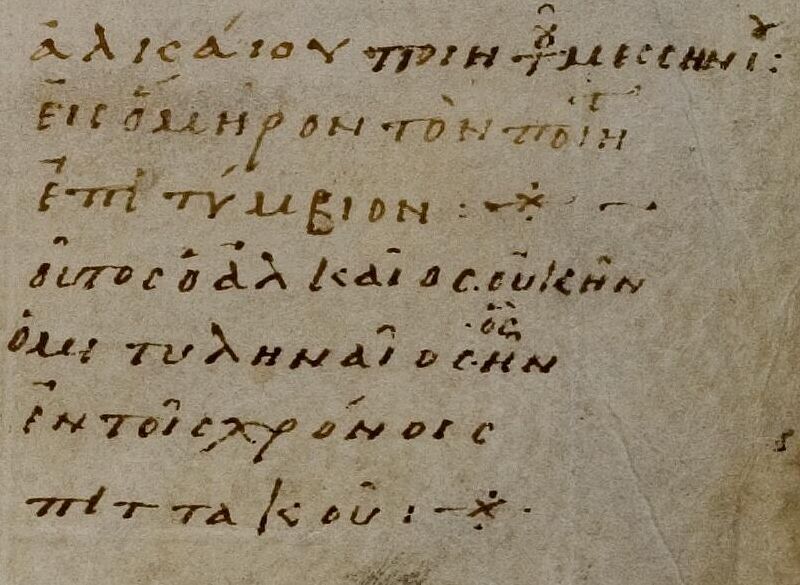 ἀλκάιου ποιητοῦ μεσσηνίου:
εἰς ὅμηρον τὸν ποιητ
ἐπιτύμβιον :
οὗτος ὁ ἀλκαῖος οὐκ ἦν
ὁ μιτυληναῖος ὃς ἦν
ἐν τοῖς χρόνοις
πιττακοῦ :